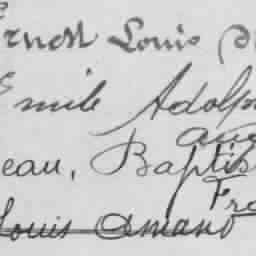 Ernest Louis
Emile Adolp
eau, Baptis
Fre
Louis Amand